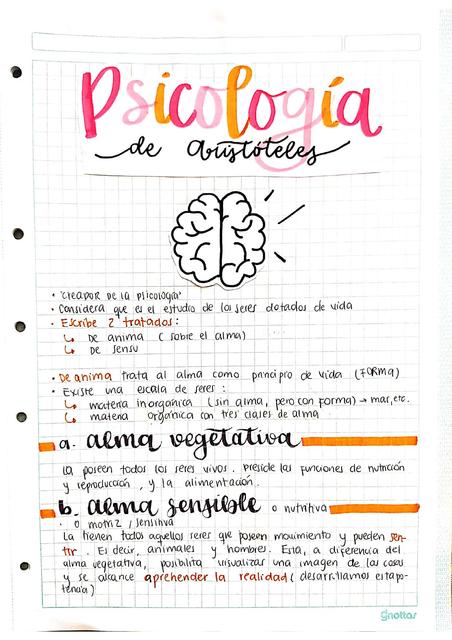 Psicología
de Aristóteles
• "Creador de la psicología"
• Considera que es el estudio de los seres dotados de vida
• Escribe 2 tratados:
↳ De anima (sobre el alma)
↳ De sensu
• De anima trata al alma como principio de vida (FORMA)
• Existe una escala de seres:
↳ materia inorgánica (sin alma, pero con forma) → mar, etc.
↳ materia orgánica con tres clases de alma
a. alma vegetativa
La poseen todos los seres vivos. Preside las funciones de nutrición
y reproducción, y la alimentación.
b. alma sensible o nutritiva
• o motriz / sensitiva
La tienen todos aquellos seres que poseen movimiento y pueden sen-
tir. Es decir, animales y hombres. Esta, a diferencia del
alma vegetativa, posibilita visualizar una imagen de las cosas
y se alcance aprehender la realidad (desarrollamos esta po-
tencia)
Gnottas